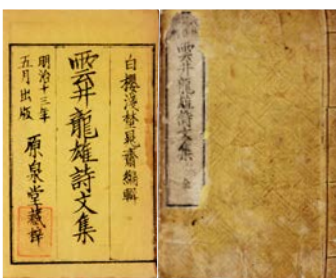 白櫻淺埜晃齋編輯
雲井龍雄詩文集
明治十三年
五月出版
原泉堂藏梓
雲井龍雄詩文集 全